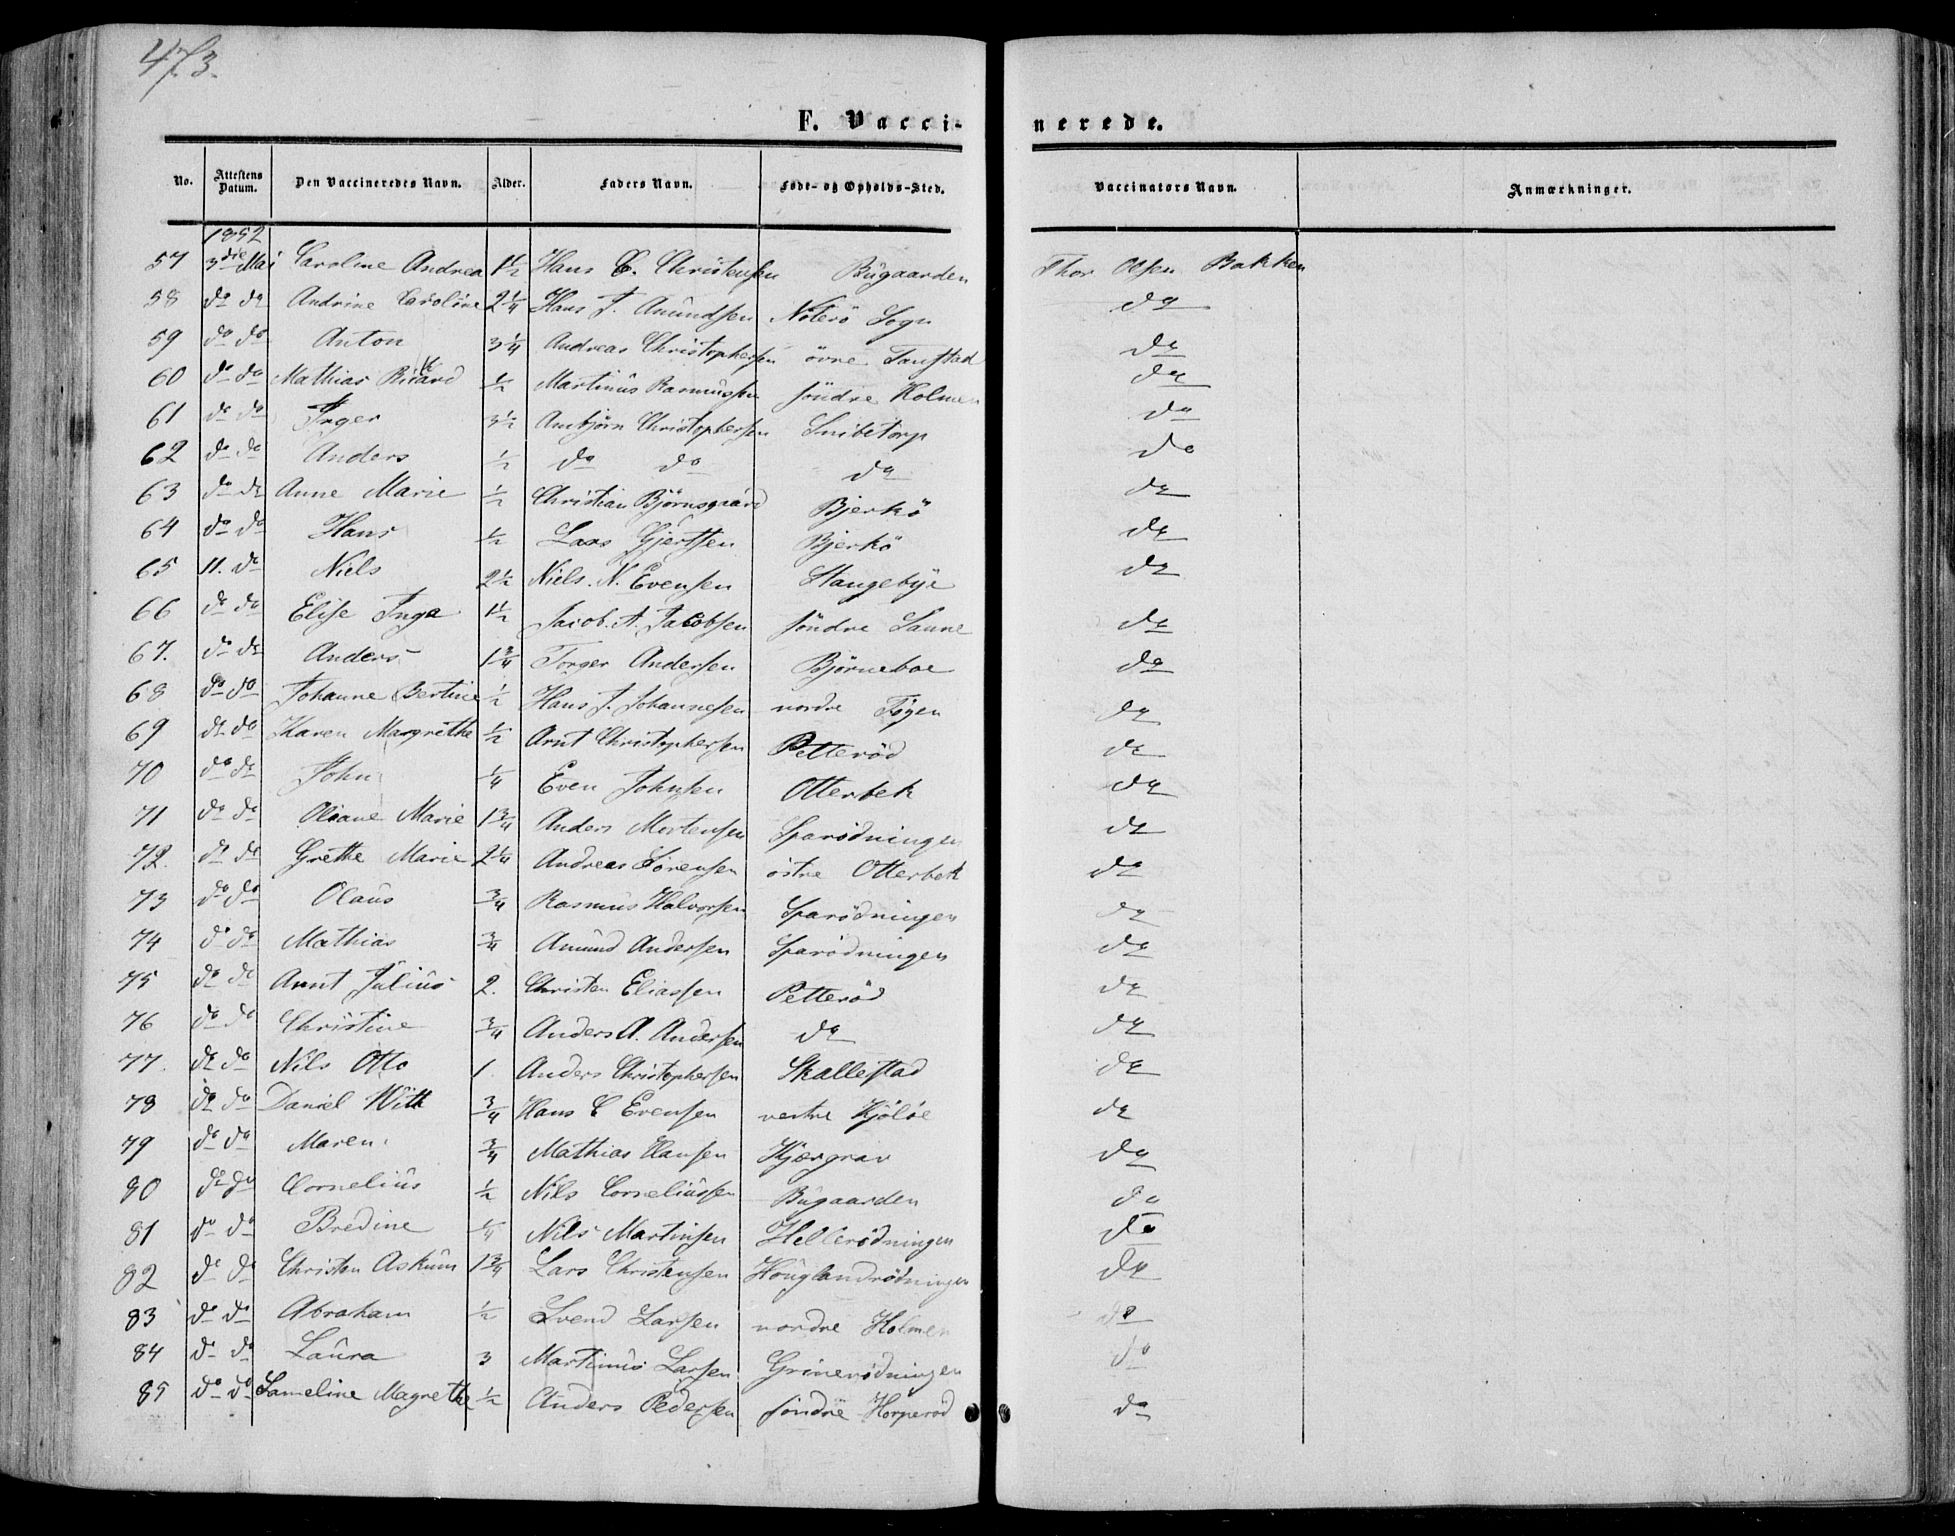 473.
F. Vaccinerede.
No. Attestens Datum. Den Vaccineredes Navn. Alder. Faders Navn. Føde- og Opholds-Sted. Vaccinators Navn. Anmærkninger.
1852
57 3die Mai Caroline Andrea 1½ Hans C. Christensen Bügaarden Thor Olsen Bakken
58 do do Andrine Caroline 2¼ Hans J. Amundsen Nöterö Sogn do
59 do do Anton 3¼ Andreas Christophersen övre do
60 do do Mathias Rikard ½ Martinus Rasmussen söndre Holmen do
61 do do Inger 3½ Anbjörn Christophersen Snibetorp do
62 do do Anders ½ do do do do
63 do do Anne Marie ½ Christian Björnsgaard Bjerkö do
64 do do Hans ½ Lars Gjertsen Bjerkö do
65 11. do Niels 2½ Niels. N. Evensen Stangebÿe do
66 do do Elise Inga 1½ Jacob. A. Jacobsen söndre do
67. do do Anders 1¾ Torger Andersen Björneboe do
68 do do Johanne Bertine ½ Hans J. Johannesen nordre Föÿen do
69 do do Karen Margrethe ½ Arnt Christophersen Petteröd do
70 do do John ¼ Even Johnsen Otterbek do
71 do do Oliane Marie 1¾ Anders Mortensen Sparödningen do
72. do do Grethe Marie 2¼ Andreas Sörensen östre Otterbek do
73 do do Olaus ¾ Rasmus Halvorsen Sparödningen do
74 do do Mathias ¾ Amund Andersen Sparödningen do
75 do do Arnt Julius 2. Christen Eliassen Petteröd do
76 do do Christine ¾ Anders A. Andersen do do
77. do do Nils Otto 1. Anders Christophersen Skallestad do
78 do do Daniel Witt ¾ Hans C Evensen vestre Kjölöe do
79 do do Maren ¾ Mathias Hansen Kjærgrav do
80 do do Cornelius ½ Nils Corneliussen Bügaarden do
81 do do Bredine ¼ Nils Martinsen Hellerödningen do
82 do do Christen Askum 1¾ Lars Christensen Houglandrödningen do
83 do do Abraham ½ Svend Larsen nordre Holmen do
84 do do Laura 3 Martinus Larsen Grinerödningen do
85 do do Lameline Magrethe ½ Anders Pedersen söndre Horperöd do